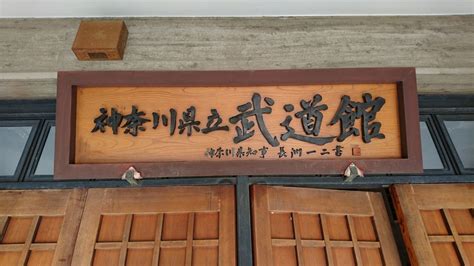 神奈川県立武道館
神奈川県知事 長洲一二書